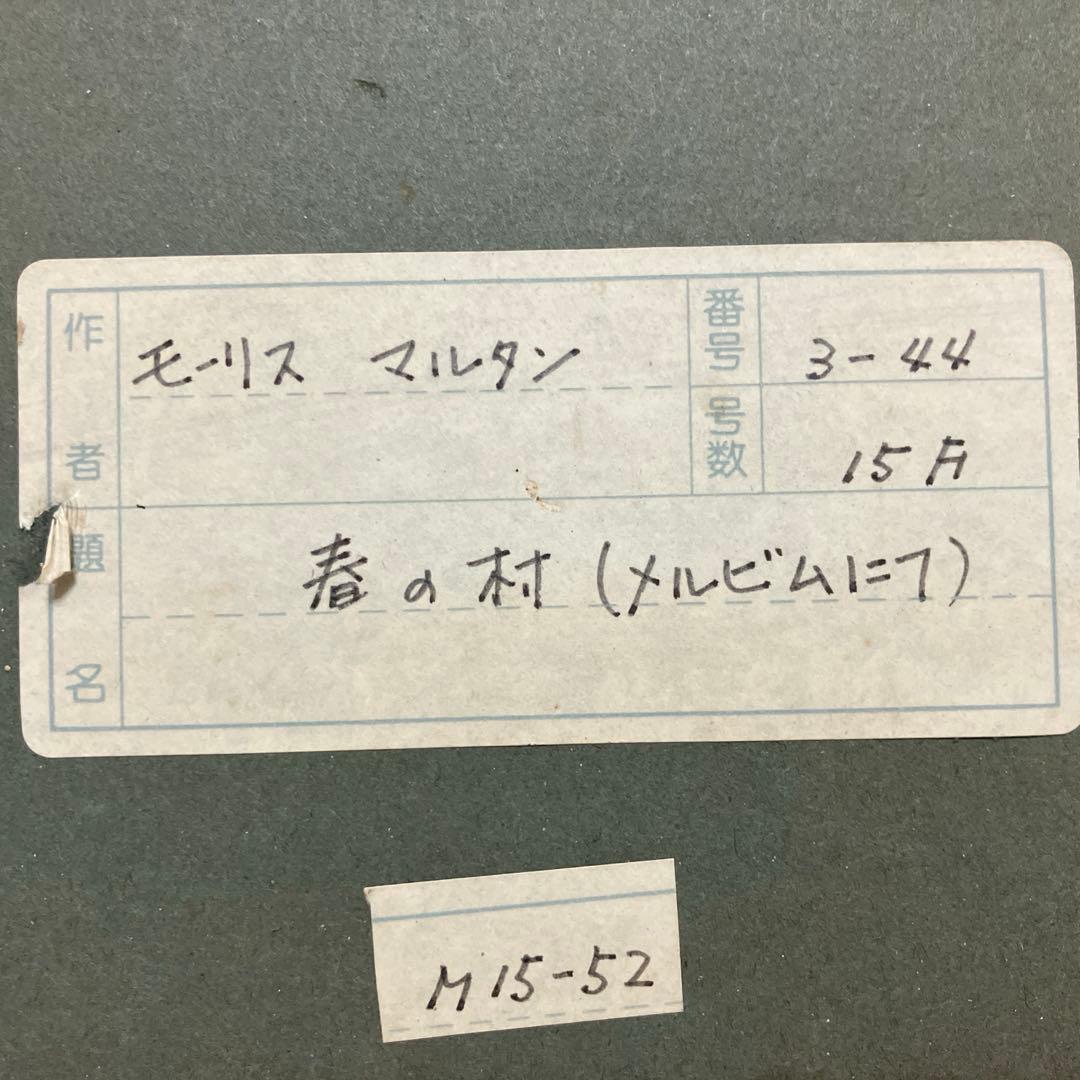 作者 モーリス マルタン
番号 3-44
号数 15F
題名 春の村(メルビムにて)
M15-52